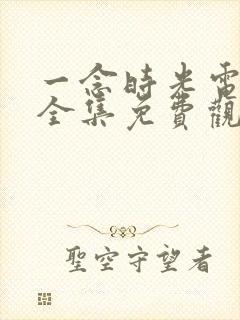 一念時光電
全集免費觀
聖空守望者